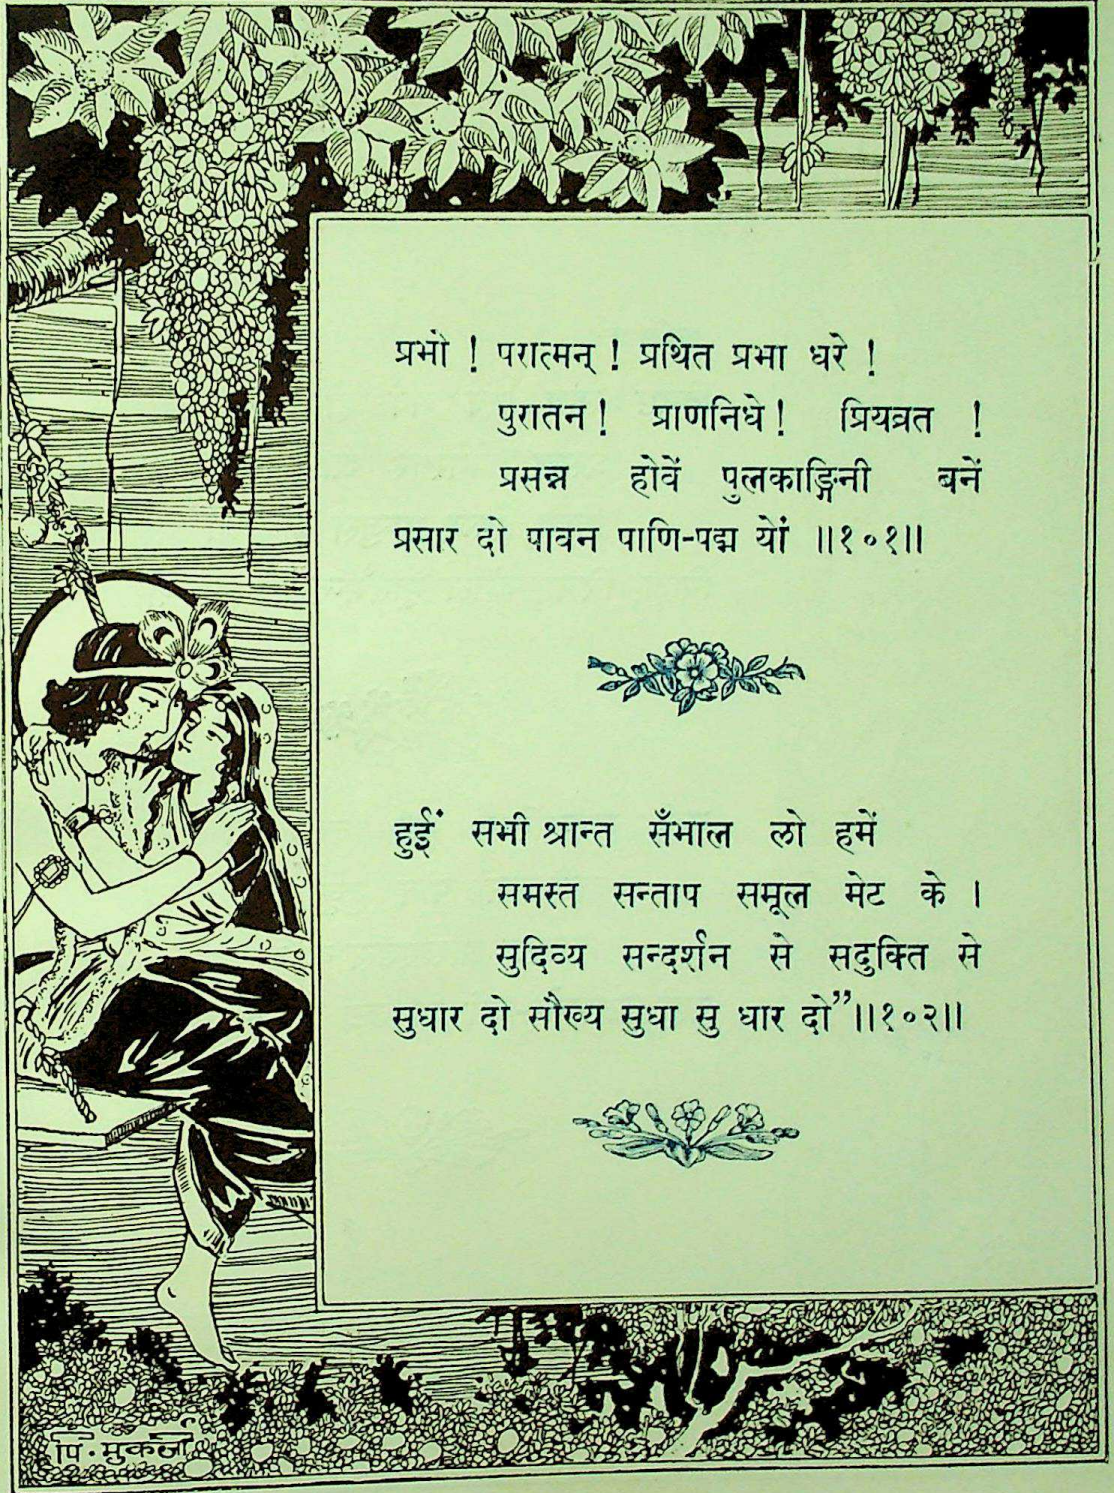 प्रभो ! परात्मन् ! प्रथित प्रभा धरे !
पुरातन ! प्राणनिधे ! प्रियव्रत !
प्रसन्न होवें पुलकाङ्गिनी बनें
प्रसार दो पावन पाणि-पद्म यों ॥१०१॥
हुईं सभी श्रान्त सँभाल लो हमें
समस्त सन्ताप समूल मेट के ।
सुदिव्य सन्दर्शन से सदुक्ति से
सुधार दो सौख्य सुधा सु धार दो” ॥१०२॥
पि. मुकर्जी